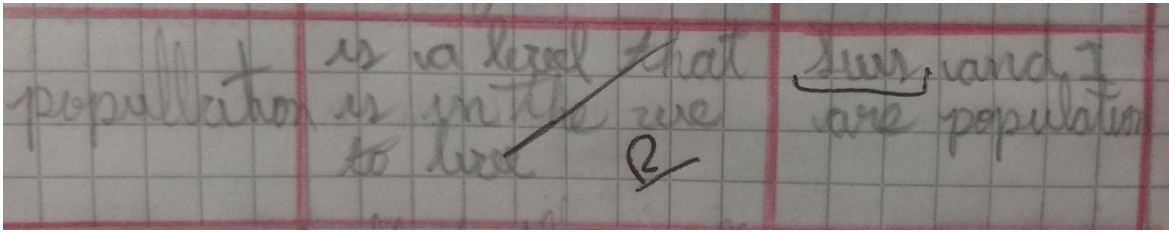 popullation
is a level that
is in the we
to live
R
and I
are population